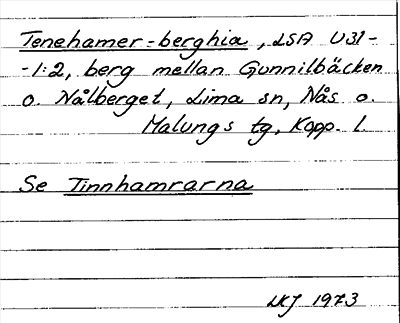 Tenehamer=berghia, LSA U31-
-1:2, berg mellan Gunnilbäcken
o. Nålberget, Lima sn, Nås o.
Malungs tg, Kopp. l.
Se Tinnhamrarna
LKJ 1973